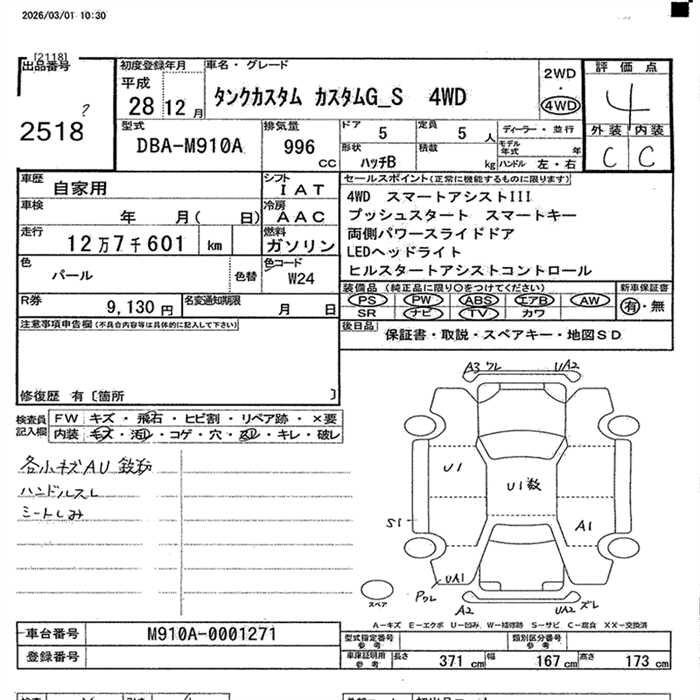 2026/03/01 10:30
[2118]
出品番号
2518
?
初度登録年月
平成
28 12 月
車名・グレード
タンクカスタム カスタムG_S 4WD
2WD
4WD
評価点
4
外装 内装
C C
型式
DBA-M910A
排気量
996 cc
ドア
5
定員
5 人
形状
ハッチB
積載
kg
ディーラー・並行
モデル年式 年
ハンドル 左・右
車歴
自家用
シフト
IAT
車検
年 月( 日)
冷房
AAC
走行
12万7千601 km
燃料
ガソリン
色
パール
色替
色コード
W24
R券
9,130 円
名変通知期限
月 日
セールスポイント(正常に機能するものに限ります)
4WD スマートアシストIII
プッシュスタート スマートキー
両側パワースライドドア
LEDヘッドライト
ヒルスタートアシストコントロール
装備品 (純正品に限り○をつけてください)
PS PW ABS エアB AW
SR ナビ TV カワ
新車保証書
有・無
後日品
保証書・取説・スペアキー・地図SD
注意事項申告欄(不具合内容等は具体的に記入して下さい)
修復歴 有〔箇所 〕
検査員記入欄
FW キズ・飛石・ヒビ割・リペア跡・×要
内装 キズ・汚れ・コゲ・穴・スレ・キレ・破レ
各小キズAU 鉄粉
ハンドルスレ
シートしみ
A3 ワレ UA2
U1
U1数
S1
A1
UA1
Pワレ
A2
UA2 ズレ
スペア
A-キズ E-エクボ U-凹み W-補修跡 S-サビ C-腐食 XX-交換済
車台番号
M910A-0001271
登録番号
型式指定番号 参考
類別区分番号 参考
車庫証明用 参考
長さ 371 cm 幅 167 cm 高さ 173 cm